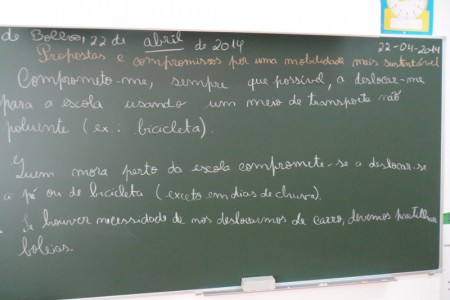 de 22 de abril de 2014
22-04-2014
Propostas e compromissos por uma mobilidade mais sustentável
Comprometo-me, sempre que possível, a deslocar-me
para a escola usando um meio de transporte não
poluente (ex.: bicicleta).
Quem mora perto da escola compromete-se a deslocar-se
a pé ou de bicicleta (exceto em dias de chuva).
Se houver necessidade de nos deslocarmos de carro, devemos partilhar
boleias.